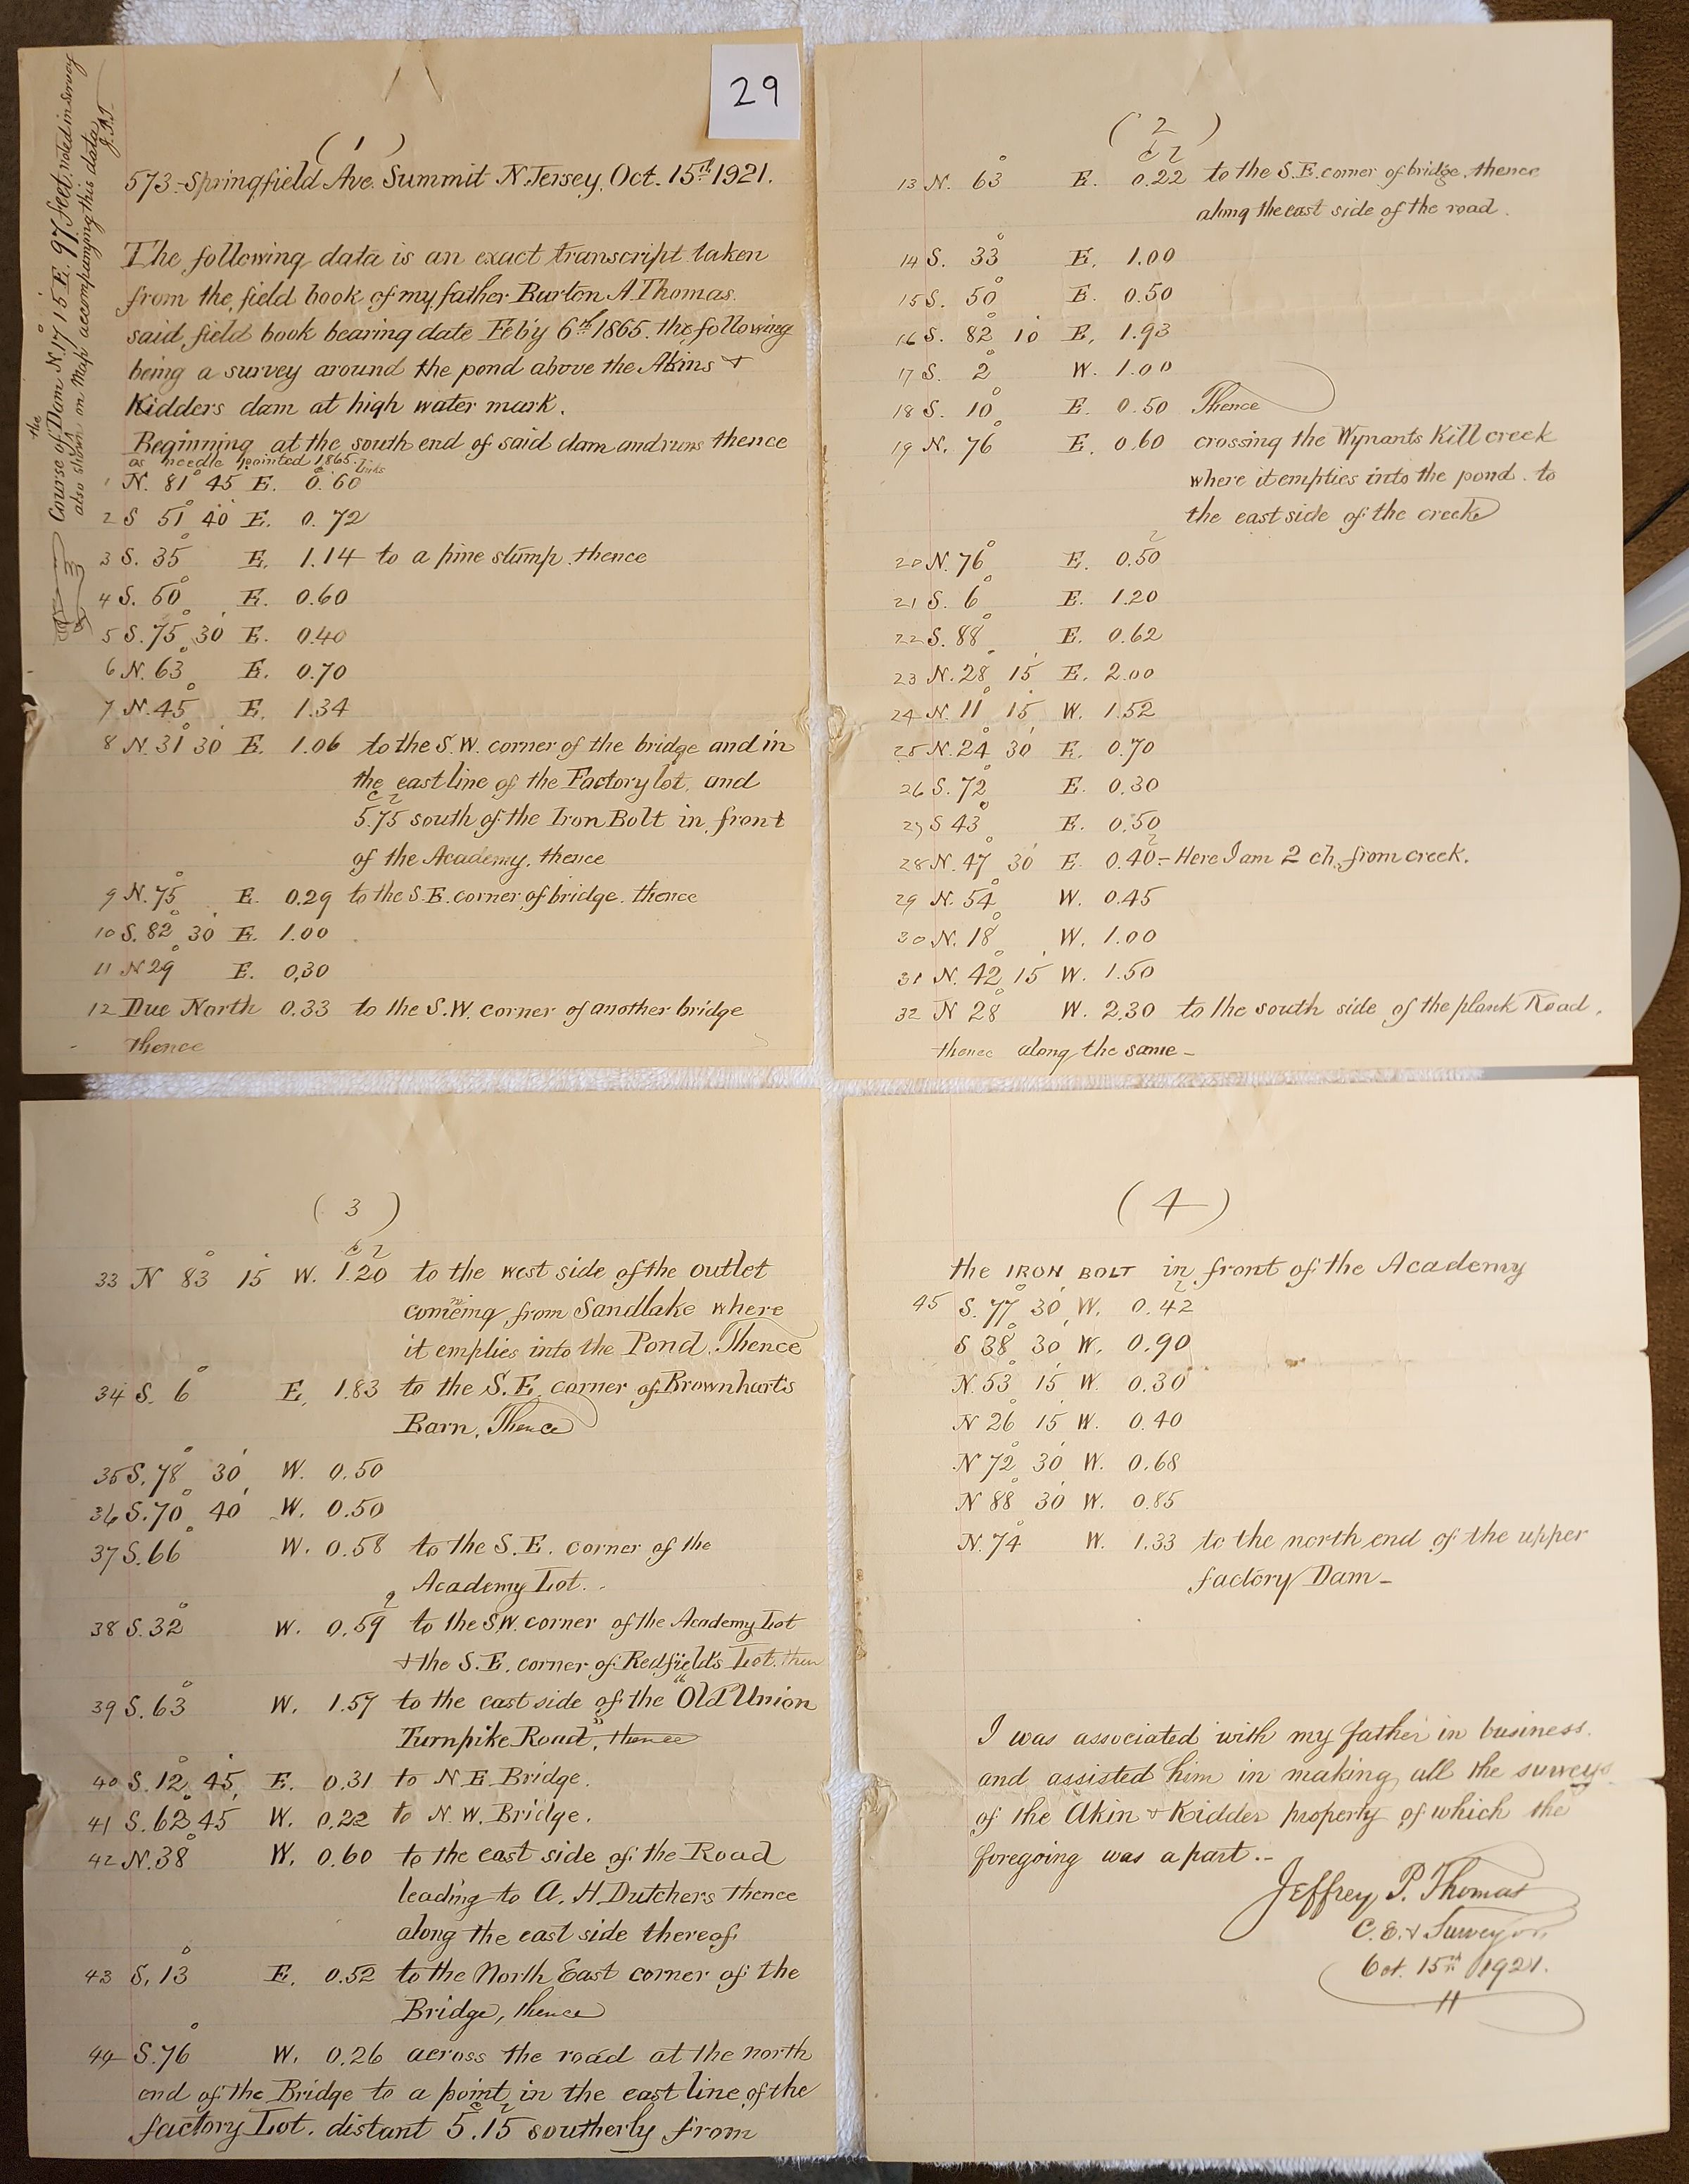 29
( 1 )
573 - Springfield Ave. Summit N. Jersey, Oct. 15th 1921.
The following data is an exact transcript taken
from the field book of my father Burton A. Thomas.
said field book bearing date Feb'y 6th 1865. the following
being a survey around the pond above the Akins &
Kidders dam at high water mark.
Beginning at the south end of said dam and runs thence
as needle pointed 1865.
c links
1 N. 81° 45' E. 0.60
2 S 51° 40' E. 0.72
3 S. 35° E. 1.14 to a pine stump. thence
4 S. 60° E. 0.60
5 S. 75° 30' E. 0.40
6 N. 63° E. 0.70
7 N. 45° E. 1.34
8 N. 31° 30' E. 1.06 to the S.W. corner of the bridge and in
the east line of the Factory lot, and
c l
5.75 south of the Iron Bolt in front
of the Academy, thence
9 N. 75° E. 0.29 to the S.E. corner of bridge. thence
10 S. 82° 30' E. 1.00
11 N 29° E. 0.30
12 Due North 0.33 to the S.W. corner of another bridge
thence
the
Course of Dam N. 17° 15' E. 97 feet, noted in survey
also shown on Map accompanying this data
J.P.T.
( 2 )
c l
13 N. 63° E. 0.22 to the S.E. corner of bridge, thence
along the east side of the road.
14 S. 33° E. 1.00
15 S. 50° E. 0.50
16 S. 82° 10' E. 1.93
17 S. 2° W. 1.00
18 S. 10° E. 0.50 Thence
19 N. 76° E. 0.60 crossing the Wynants Kill creek
where it empties into the pond. to
the east side of the creek
l
20 N. 76° E. 0.50
21 S. 6° E. 1.20
22 S. 88° E. 0.62
23 N. 28° 15' E. 2.00
24 N. 11° 15' W. 1.52
25 N. 24° 30' E. 0.70
26 S. 72° E. 0.30
27 S 43° E. 0.50
l
28 N. 47° 30' E. 0.40 - Here I am 2 ch. from creek.
29 N. 54° W. 0.45
30 N. 18° W. 1.00
31 N. 42° 15' W. 1.50
32 N 28° W. 2.30 to the south side of the plank Road,
thence along the same -
( 3 )
c l
33 N 83° 15' W. 1.20 to the west side of the outlet
comeing from Sandlake where
it emplies into the Pond. Thence
34 S. 6° E. 1.83 to the S.E. corner of Brownharts
Barn, Thence
35 S. 78° 30' W. 0.50
36 S. 70° 40' W. 0.50
37 S. 66° W. 0.58 to the S.E. corner of the
Academy Lot.
l
38 S. 32° W. 0.59 to the S.W. corner of the Academy Lot
& the S.E. corner of Redfield's Lot. then
39 S. 63° W. 1.57 to the east side of the "Old Union
Turnpike Road", thence
40 S. 12° 45' E. 0.31 to N.E. Bridge.
41 S. 62° 45' W. 0.22 to N.W. Bridge.
42 N. 38° W. 0.60 to the east side of the Road
leading to A. H. Dutchers thence
along the east side thereof.
43 S. 13° E. 0.52 to the North East corner of the
Bridge, thence
44 S. 76° W. 0.26 across the road at the north
end of the Bridge to a point in the east line of the
c l
factory Lot. distant 5.15 southerly from
( 4 )
the IRON BOLT in front of the Academy
l
45 S. 77° 30' W. 0.42
S 38° 30' W. 0.90
N. 53° 15' W. 0.30
N 26° 15' W. 0.40
N 72° 30' W. 0.68
N 88° 30' W. 0.85
N. 74° W. 1.33 to the north end of the upper
factory Dam -
I was associated with my father in business.
and assisted him in making all the surveys
of the Akin & Kidder property of which the
foregoing was a part. -
Jeffrey P. Thomas
C.E. & Surveyor,
Oct. 15th 1921.